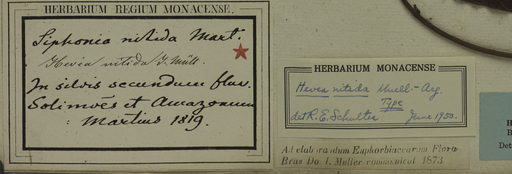 HERBARIUM REGIUM MONACENSE.
Siphonia nitida Mart.
Hevea nitida J. Müll.
In silvis secundum fluv.
Solimoës et Amazonum
Martius 1819.
HERBARIUM MONACENSE
Hevea nitida Muell-Arg.
Type
det R. E. Schultes June 1950.
Ad elaborandum Euphorbiacearum Florae
Bras Do. J. Müller communicat 1873
H
B
Det